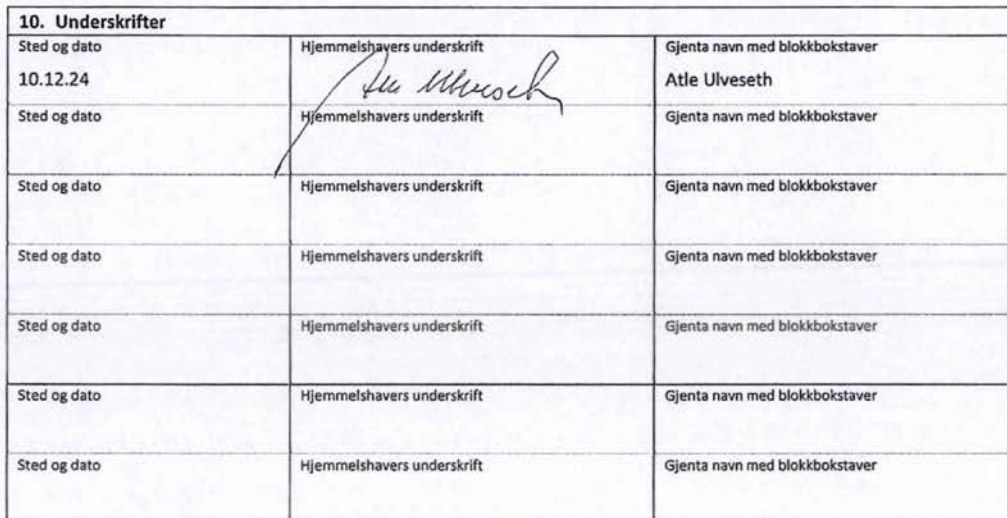 10. Underskrifter
Sted og dato Hjemmelshavers underskrift Gjenta navn med blokkbokstaver
10.12.24 Atle Ulveseth
Sted og dato Hjemmelshavers underskrift Gjenta navn med blokkbokstaver
Sted og dato Hjemmelshavers underskrift Gjenta navn med blokkbokstaver
Sted og dato Hjemmelshavers underskrift Gjenta navn med blokkbokstaver
Sted og dato Hjemmelshavers underskrift Gjenta navn med blokkbokstaver
Sted og dato Hjemmelshavers underskrift Gjenta navn med blokkbokstaver
Sted og dato Hjemmelshavers underskrift Gjenta navn med blokkbokstaver